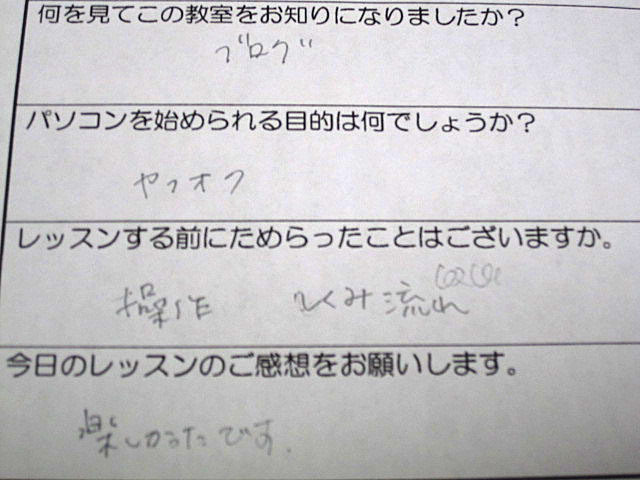 何を見てこの教室をお知りになりましたか？
ブログ
パソコンを始められる目的は何でしょうか？
ヤフオク
レッスンする前にためらったことはございますか。
操作 しくみ流れ
今日のレッスンのご感想をお願いします。
楽しかったです.